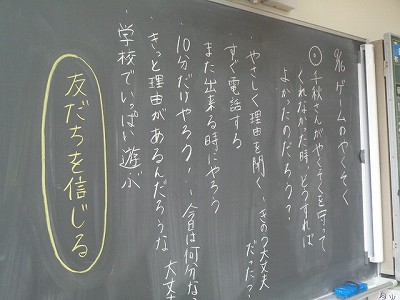 9/16 ゲームのやくそく
千秋さんがやくそくを守って
くれなかった時、どうすれば
よかったのだろう?
・やさしく理由を聞く きのう大丈夫
だった?
・すぐ電話する
・また出来る時にやろう
・10分だけやろう! 今日は何分なら
・きっと理由があるんだろうな 大丈夫
・学校でいっぱい遊ぶ
友だちを信じる